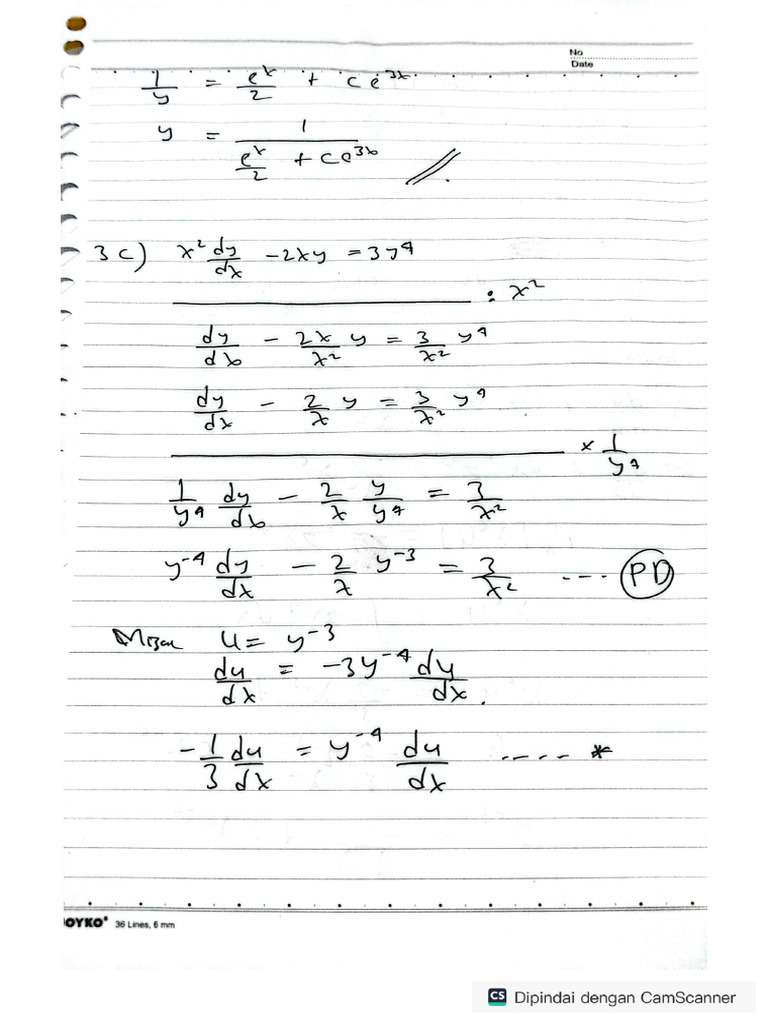 No
Date
1/y = e^x/2 + c e^3x
y = 1/(e^x/2 + c e^3x) //.
3 c) x² dy/dx - 2xy = 3y⁴
: x²
dy/dx - 2x/x² y = 3/x² y⁴
dy/dx - 2/x y = 3/x² y⁴
x 1/y⁴
1/y⁴ dy/dx - 2/x y/y⁴ = 3/x²
y⁻⁴ dy/dx - 2/x y⁻³ = 3/x² --- PD
Misal u = y⁻³
du/dx = -3y⁻⁴ dy/dx.
-1/3 du/dx = y⁻⁴ du/dx ---- *
OYKO® 36 Lines, 6 mm
CS Dipindai dengan CamScanner